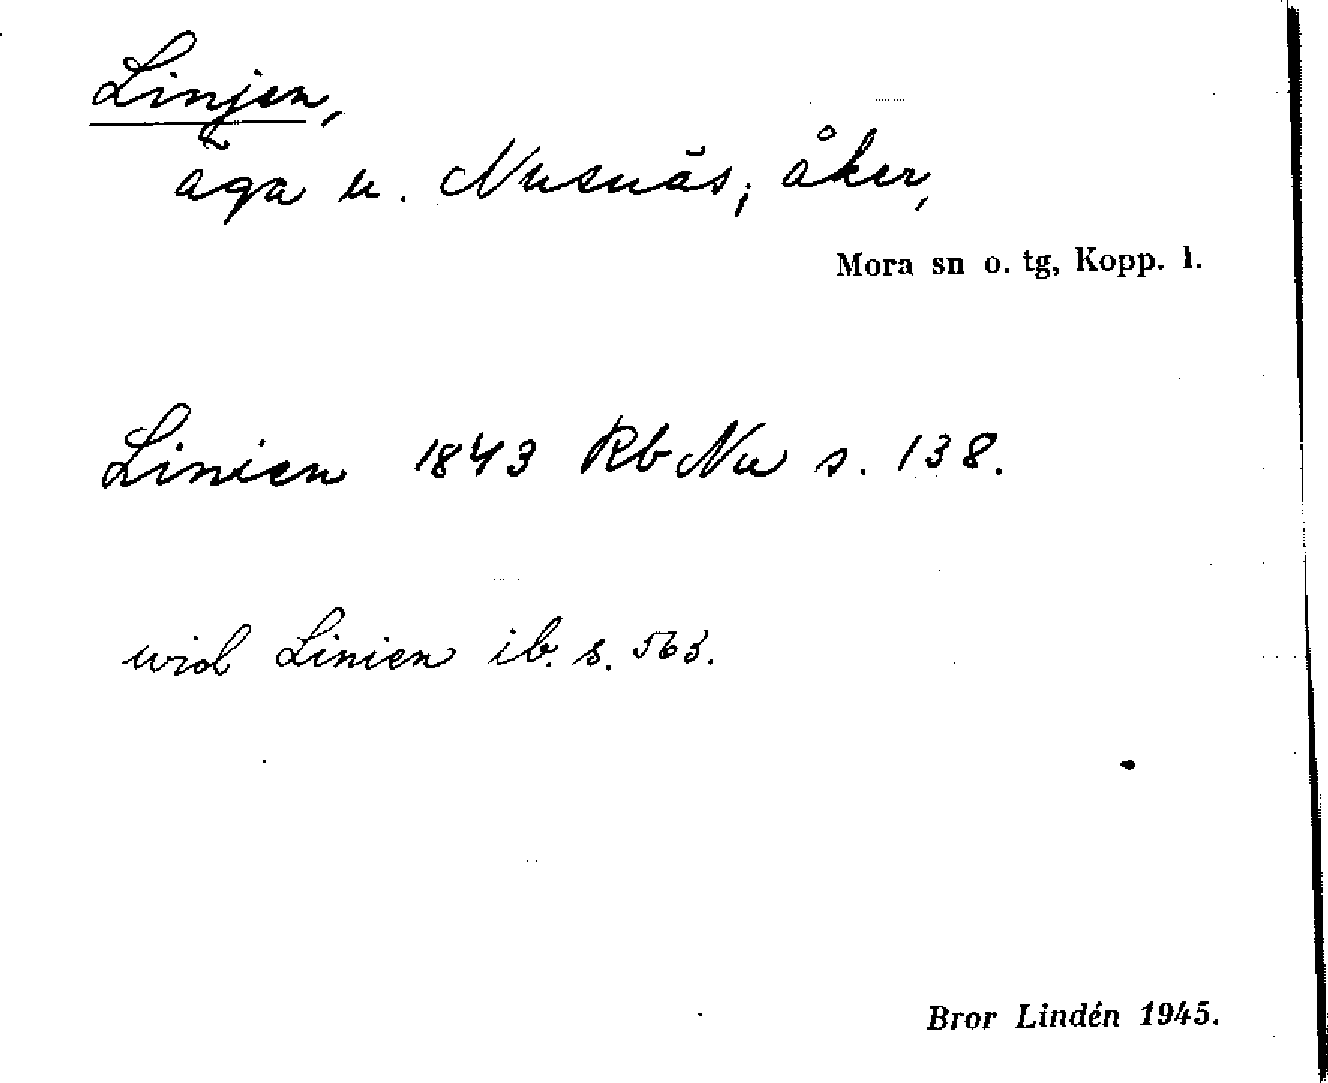 Linjen,
äga u. Nusnäs; åker,
Mora sn o. tg, Kopp. l.
Linien 1843 Rb Nu s. 138.
wid Linien ib. s. 563.
Bror Lindén 1945.